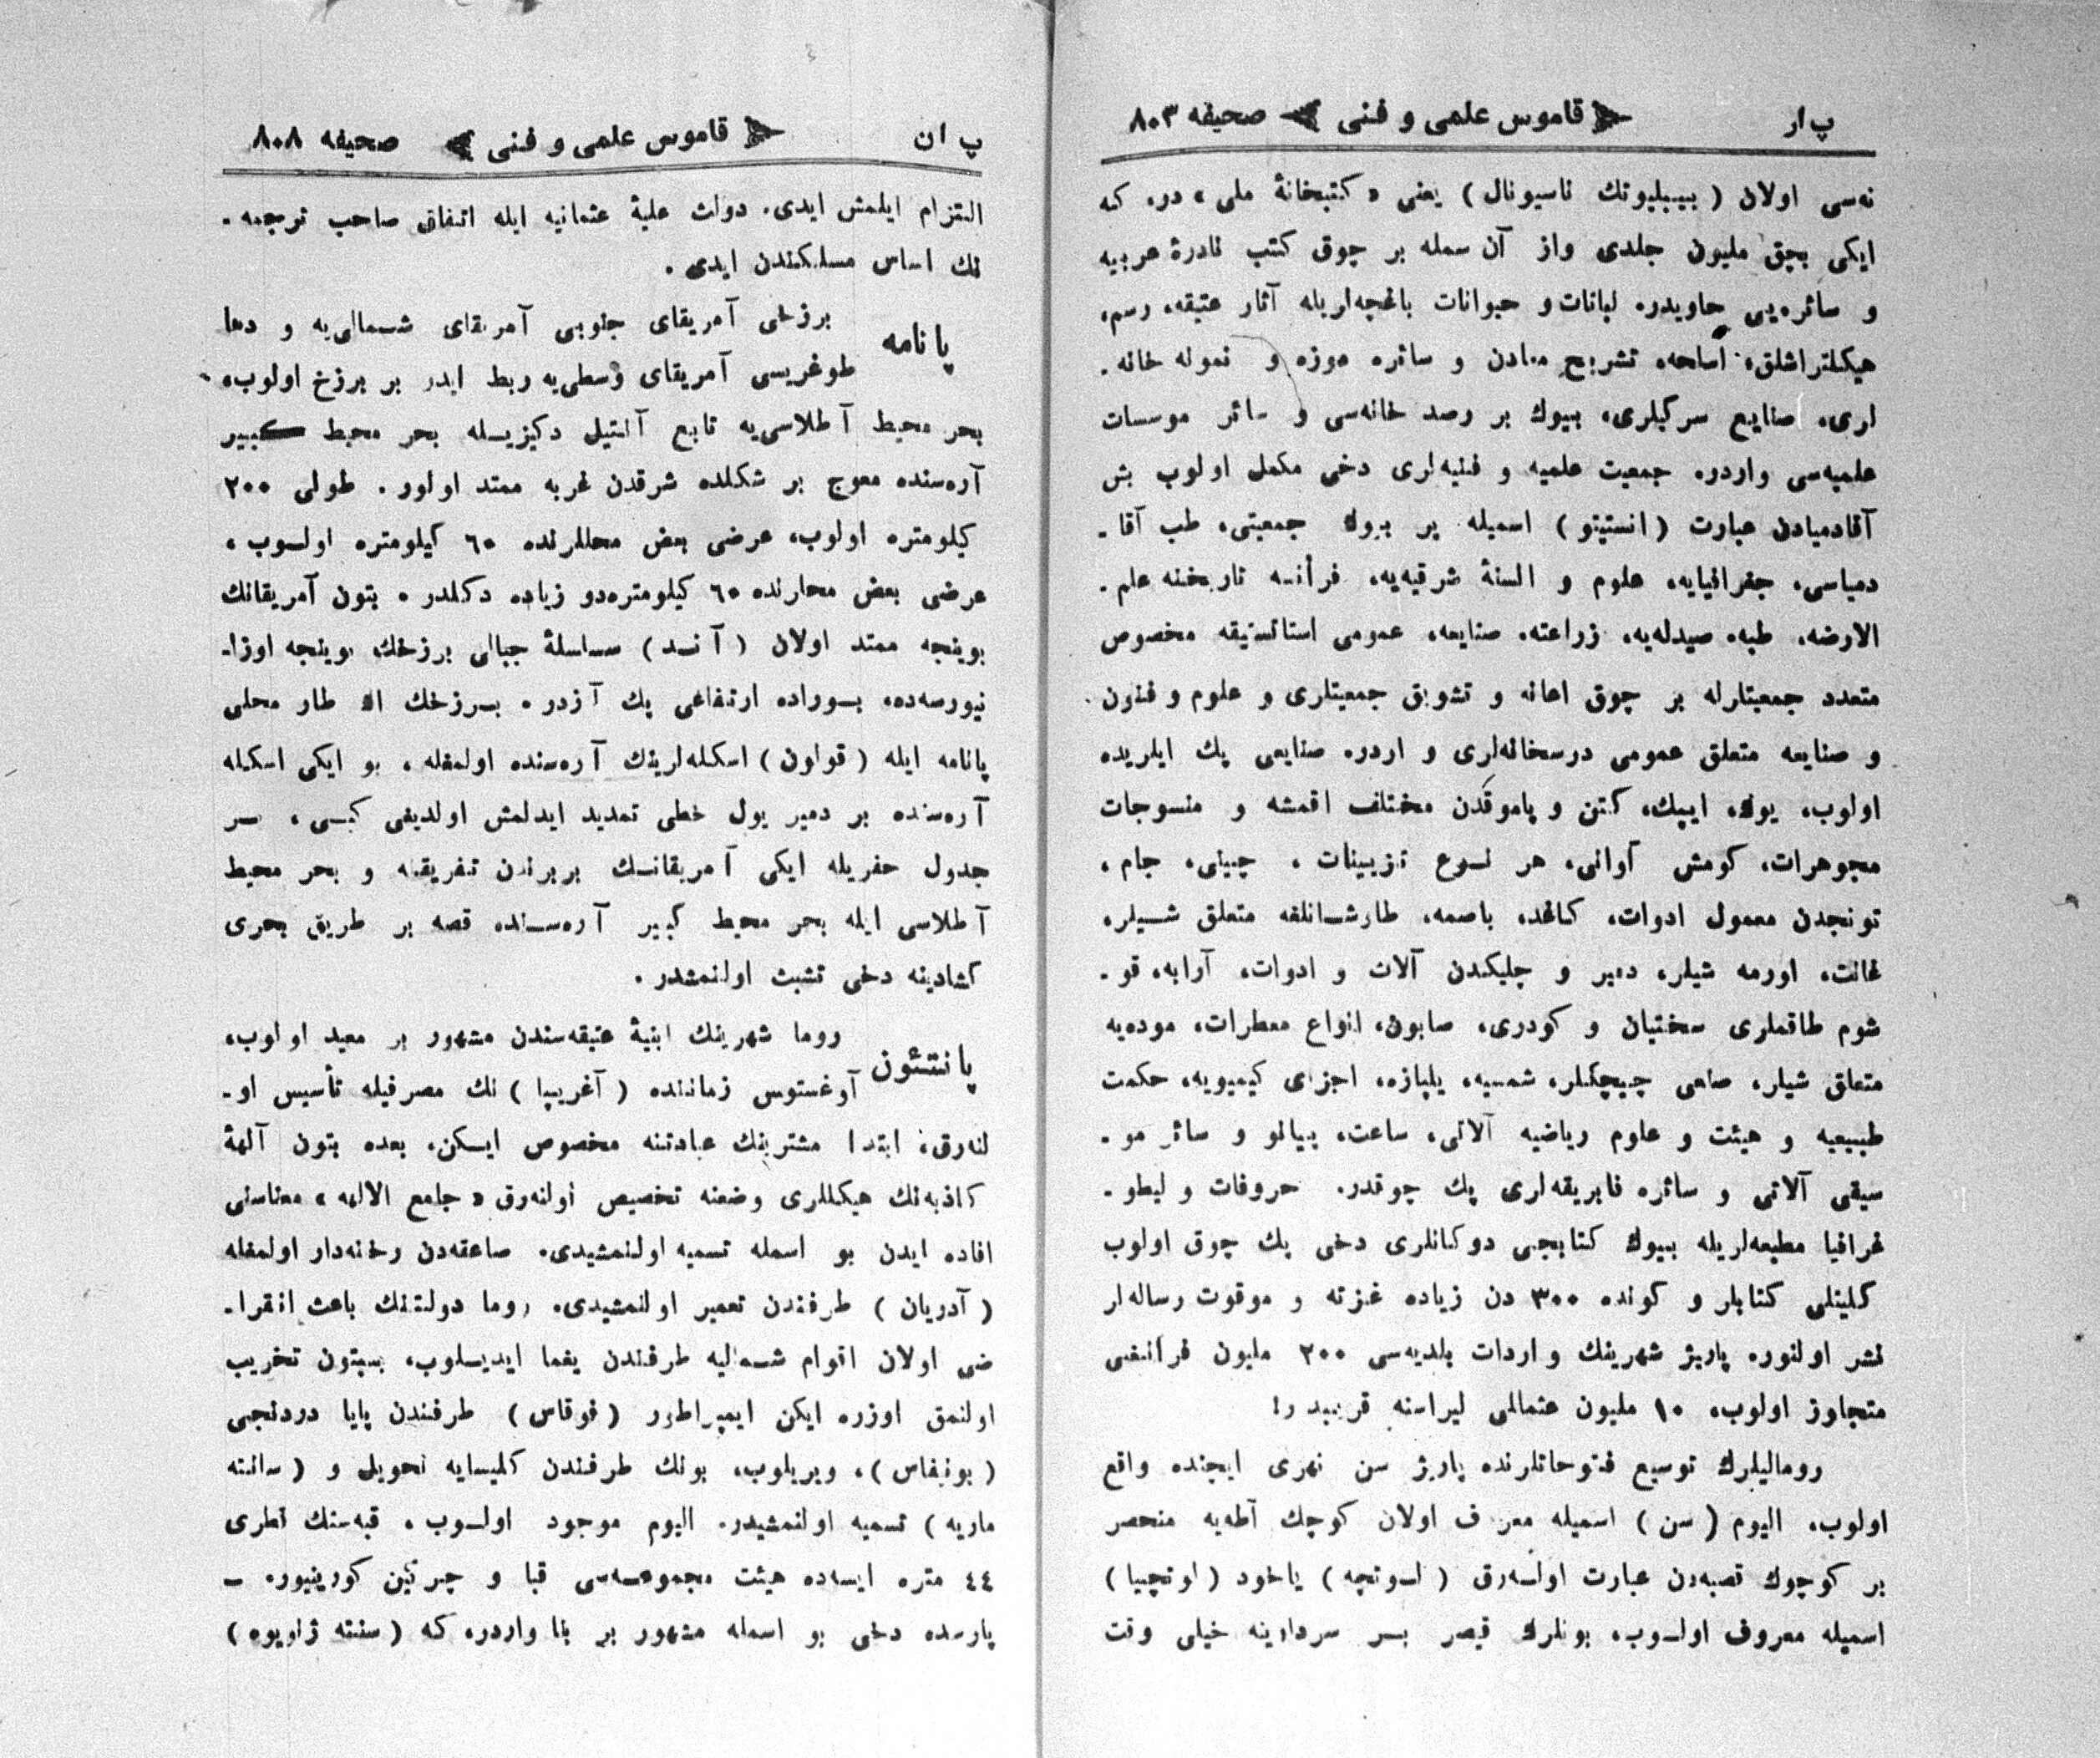 پ ار قاموس علمی و فنی صحیفه ٨٠٣
نه‌سی اولان ( بیبلیوتك ناسیونال ) یعنی « كتبخانهٔ ملی » در، كه
ایكی بچق ملیون جلدی واز آن سمله بر چوق كتب نادرهٔ عربیه
و سائره‌یی حاویدر، نباتات و حیوانات باغچه‌لریله آثار عتیقه، رسم،
هیكلتراشلق، اسلحه، تشریح معادن و سائره موزه و نمونه خانه ـ
لری، صنایع سركیلری، بیوك بر رصد خانه‌سی و سائر موسسات
علمیه‌سی واردر. جمعیت علمیه و فنیه‌لری دخی مكمل اولوب بش
آقادمیادن عبارت ( انستیتو ) اسمیله بر بیوك جمعیتی، طب آقا ـ
دمیاسی، جغرافیایه، علوم و السنهٔ شرقیه‌یه، فرانسه تاریخنه علم ـ
الارضه، طبه، صیدله‌یه، زراعته، صنایعه، عمومی استاتستیقه مخصوص
متعدد جمعیتلرله بر چوق اعانه و تشویق جمعیتلری و علوم و فنون
و صنایعه متعلق عمومی درسخانه‌لری و اردر، صنایعی پك ایلریده
اولوب، یوك، ایپك، كتن و پاموقدن مختلف اقمشه و منسوجات
مجوهرات، كومش آوانی، هر نوع تزیینات ، چینی، جام ،
تونجدن معمول ادوات، كاغد، باصمه، طارشانلغه متعلق شیلر،
خالت، اورمه شیلر، دمیر و چلیكدن آلات و ادوات، آرابه، قو ـ
شوم طاقملری سختیان و كودری، صابون، انواع معطرات، موده‌یه
متعلق شیلر، صنعی چیچكلر، شمسیه، یلپازه، اجزای كیمیویه، حكمت
طبیعیه و هیئت و علوم ریاضیه آلاتی، ساعت، پیانو و سائر مو ـ
سیقی آلاتی و سائره فابریقه‌لری پك چوقدر. حروفات و لیطو ـ
غرافیا مطبعه‌لریله بیوك كتابجی دوكانلری دخی پك چوق اولوب
كلیتلی كتابلر و كونده ٣٠٠ دن زیاده غزته و موقوت رساله‌لر
نشر اولنور. پاریژ شهرینك واردات بلدیه‌سی ٢٠٠ ملیون فرانغی
متجاوز اولوب، ١٠ ملیون عثمانلی لیراسنه قریبدر!
رومالیلرك توسیع فتوحاتلرنده پاریژ سن نهری ایچنده واقع
اولوب، الیوم ( سن ) اسمیله معرف اولان كوچك آطه‌یه منحصر
بر كوچوك قصبه‌دن عبارت اوله‌رق ( لوتچه ) یاخود ( لوتچیا )
اسمیله معروف اولوب، بونلرك قیصر بر سردارینه خیلی وقت
پ ان قاموس علمی و فنی صحیفه ٨٠٨
التزام ایلمش ایدی. دولت علیهٔ عثمانیه ایله اتفاق صاحب ترجمه ـ
نك اساس مسلكندن ایدی .
پانامه برزخی آمریقای جنوبی آمریقای شمالی‌یه و دها
طوغریسی آمریقای وسطی‌یه ربط ایدر بر برزخ اولوب،
بحر محیط آطلاسی‌یه تابع آنتیل دكیزیله بحر محیط كبیر
آره‌سنده معوج بر شكلده شرقدن غربه ممتد اولور . طولی ٢٠٠
كیلومتره اولوب، عرضی بعض محللرنده ٦٠ كیلومتره اولوب ،
عرضی بعض محلرنده ٦٠ كیلومتره‌دو زیاده دكلدر . بتون آمریقانك
بوینجه ممتد اولان ( آند ) سلسلهٔ جبالی برزخك بوینجه اوزا ـ
نیورسه‌ده، بوراده ارتفاعی پك آزدر . برزخك اك طار محلی
پانامه ایله ( قولون ) اسكله‌لرینك آره‌سنده اولمغله ، بو ایكی اسكله
آره‌سنده بر دمیر یول خطی تمدید ایدلمش اولدیغی كبی ، بر
جدول حفریله ایكی آمریقانك بربرندن تفریقنه و بحر محیط
آطلاسی ایله بحر محیط كبیر آره‌سنده قصه بر طریق بحری
كشادینه دخی تشبث اولنمشدر .
پانتئون روما شهرینك ابنیهٔ عتیقه‌سندن مشهور بر معبد اولوب،
آوغستوس زماننده ( آغریپا ) نك مصرفیله تأسیس او ـ
لنه‌رق، ابتدا مشترینك عبادتنه مخصوص ایكن، بعده بتون آلههٔ
كاذبه‌نك هیكللری وضعنه تخصیص اولنه‌رق « جامع الالهه » معناسنی
افاده ایدن بو اسمله تسمیه اولنمشیدی. صاعقه‌دن رخنه‌دار اولمغله
( آدریان ) طرفندن تعمیر اولنمشیدی. روما دولتنك باعث انقرا ـ
ضی اولان اقوام شمالیه طرفندن یغما ایدیلوب، بسبتون تخریب
اولنمق اوزره ایكن ایمپراطور ( فوقاس ) طرفندن پاپا دردنجی
( بونیفاس )، ویریلوب، بونك طرفندن كلیسایه تحویل و ( سانته
ماریه ) تسمیه اولنمشیدر. الیوم موجود اولوب ، قبه‌سنك قطری
٤٤ متره ایسه‌ده هیئت مجموعه‌سی قبا و چیركین كورینیور. ـ
پارسده دخی بو اسمله مشهور بر بنا واردر، كه ( سنته ژاویوه )